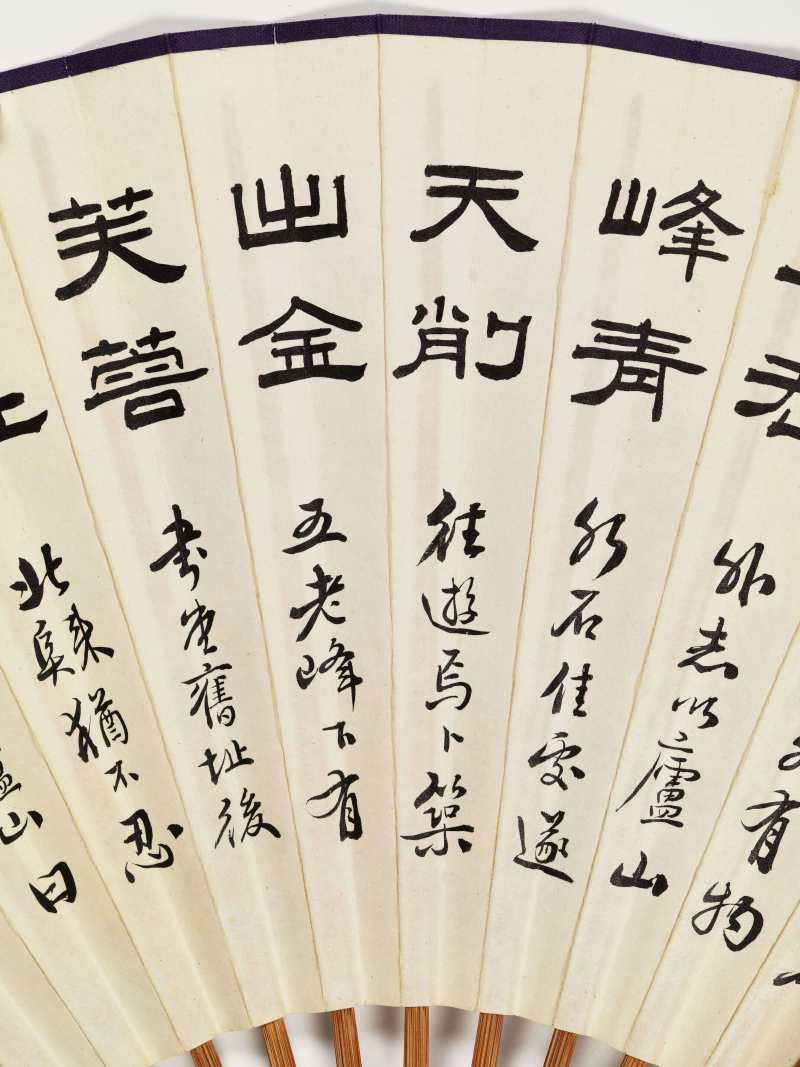 峰青
天削
出金
芙蓉
有物
外志以廬山
水石佳處遂
往遊焉卜築
五老峰下有
書堂舊址後
北歸猶不忍
廬山曰